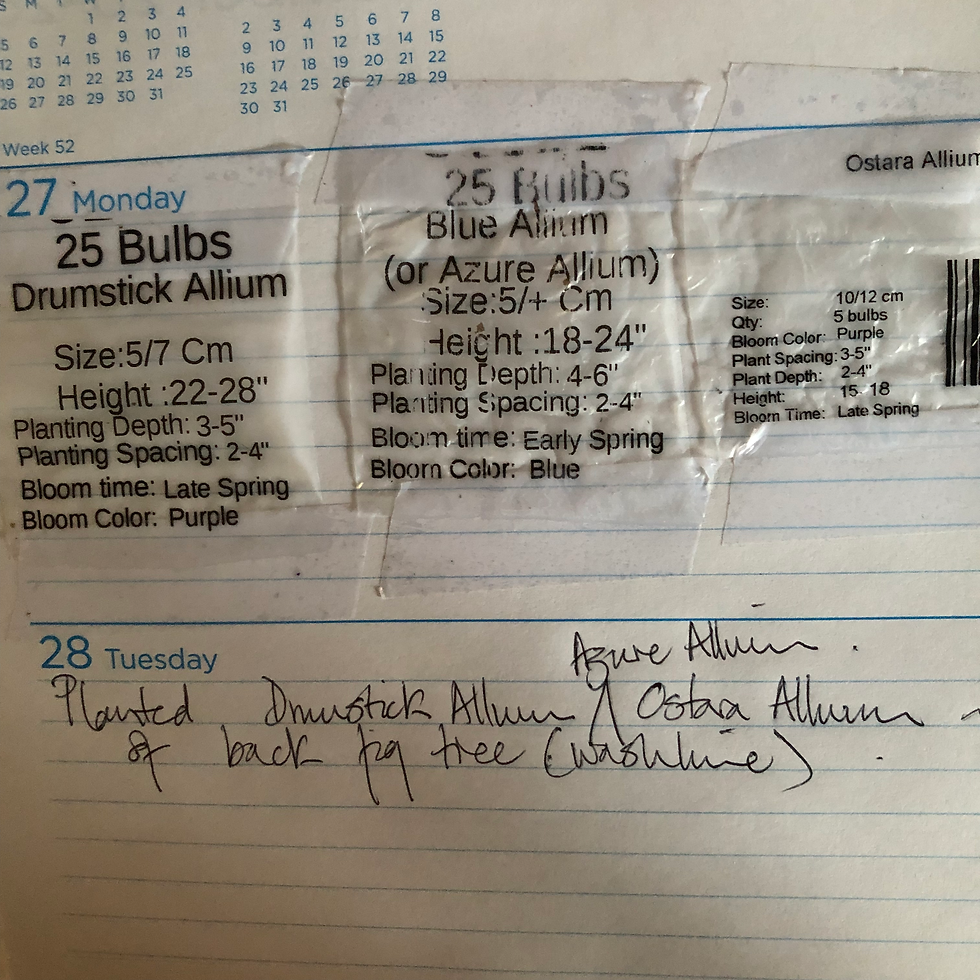 S M T W
1 2 3 4
5 6 7 8 9 10 11
12 13 14 15 16 17 18
19 20 21 22 23 24 25
26 27 28 29 30 31
2 3 4 5 6 7 8
9 10 11 12 13 14 15
16 17 18 19 20 21 22
23 24 25 26 27 28 29
30 31
Week 52
27 Monday
25 Bulbs
Drumstick Allium
Size:5/7 Cm
Height :22-28"
Planting Depth: 3-5"
Planting Spacing: 2-4"
Bloom time: Late Spring
Bloom Color: Purple
25 Bulbs
Blue Allium
(or Azure Allium)
Size:5/+ Cm
Height :18-24"
Planting Depth: 4-6"
Planting Spacing: 2-4"
Bloom time: Early Spring
Bloom Color: Blue
Ostara Allium
Size: 10/12 cm
Qty: 5 bulbs
Bloom Color: Purple
Plant Spacing: 3-5"
Plant Depth: 2-4"
Height: 15 18
Bloom Time: Late Spring
28 Tuesday
Azure Allium .
Planted Drumstick Allium / Ostara Allium
of back fig tree (washline) .